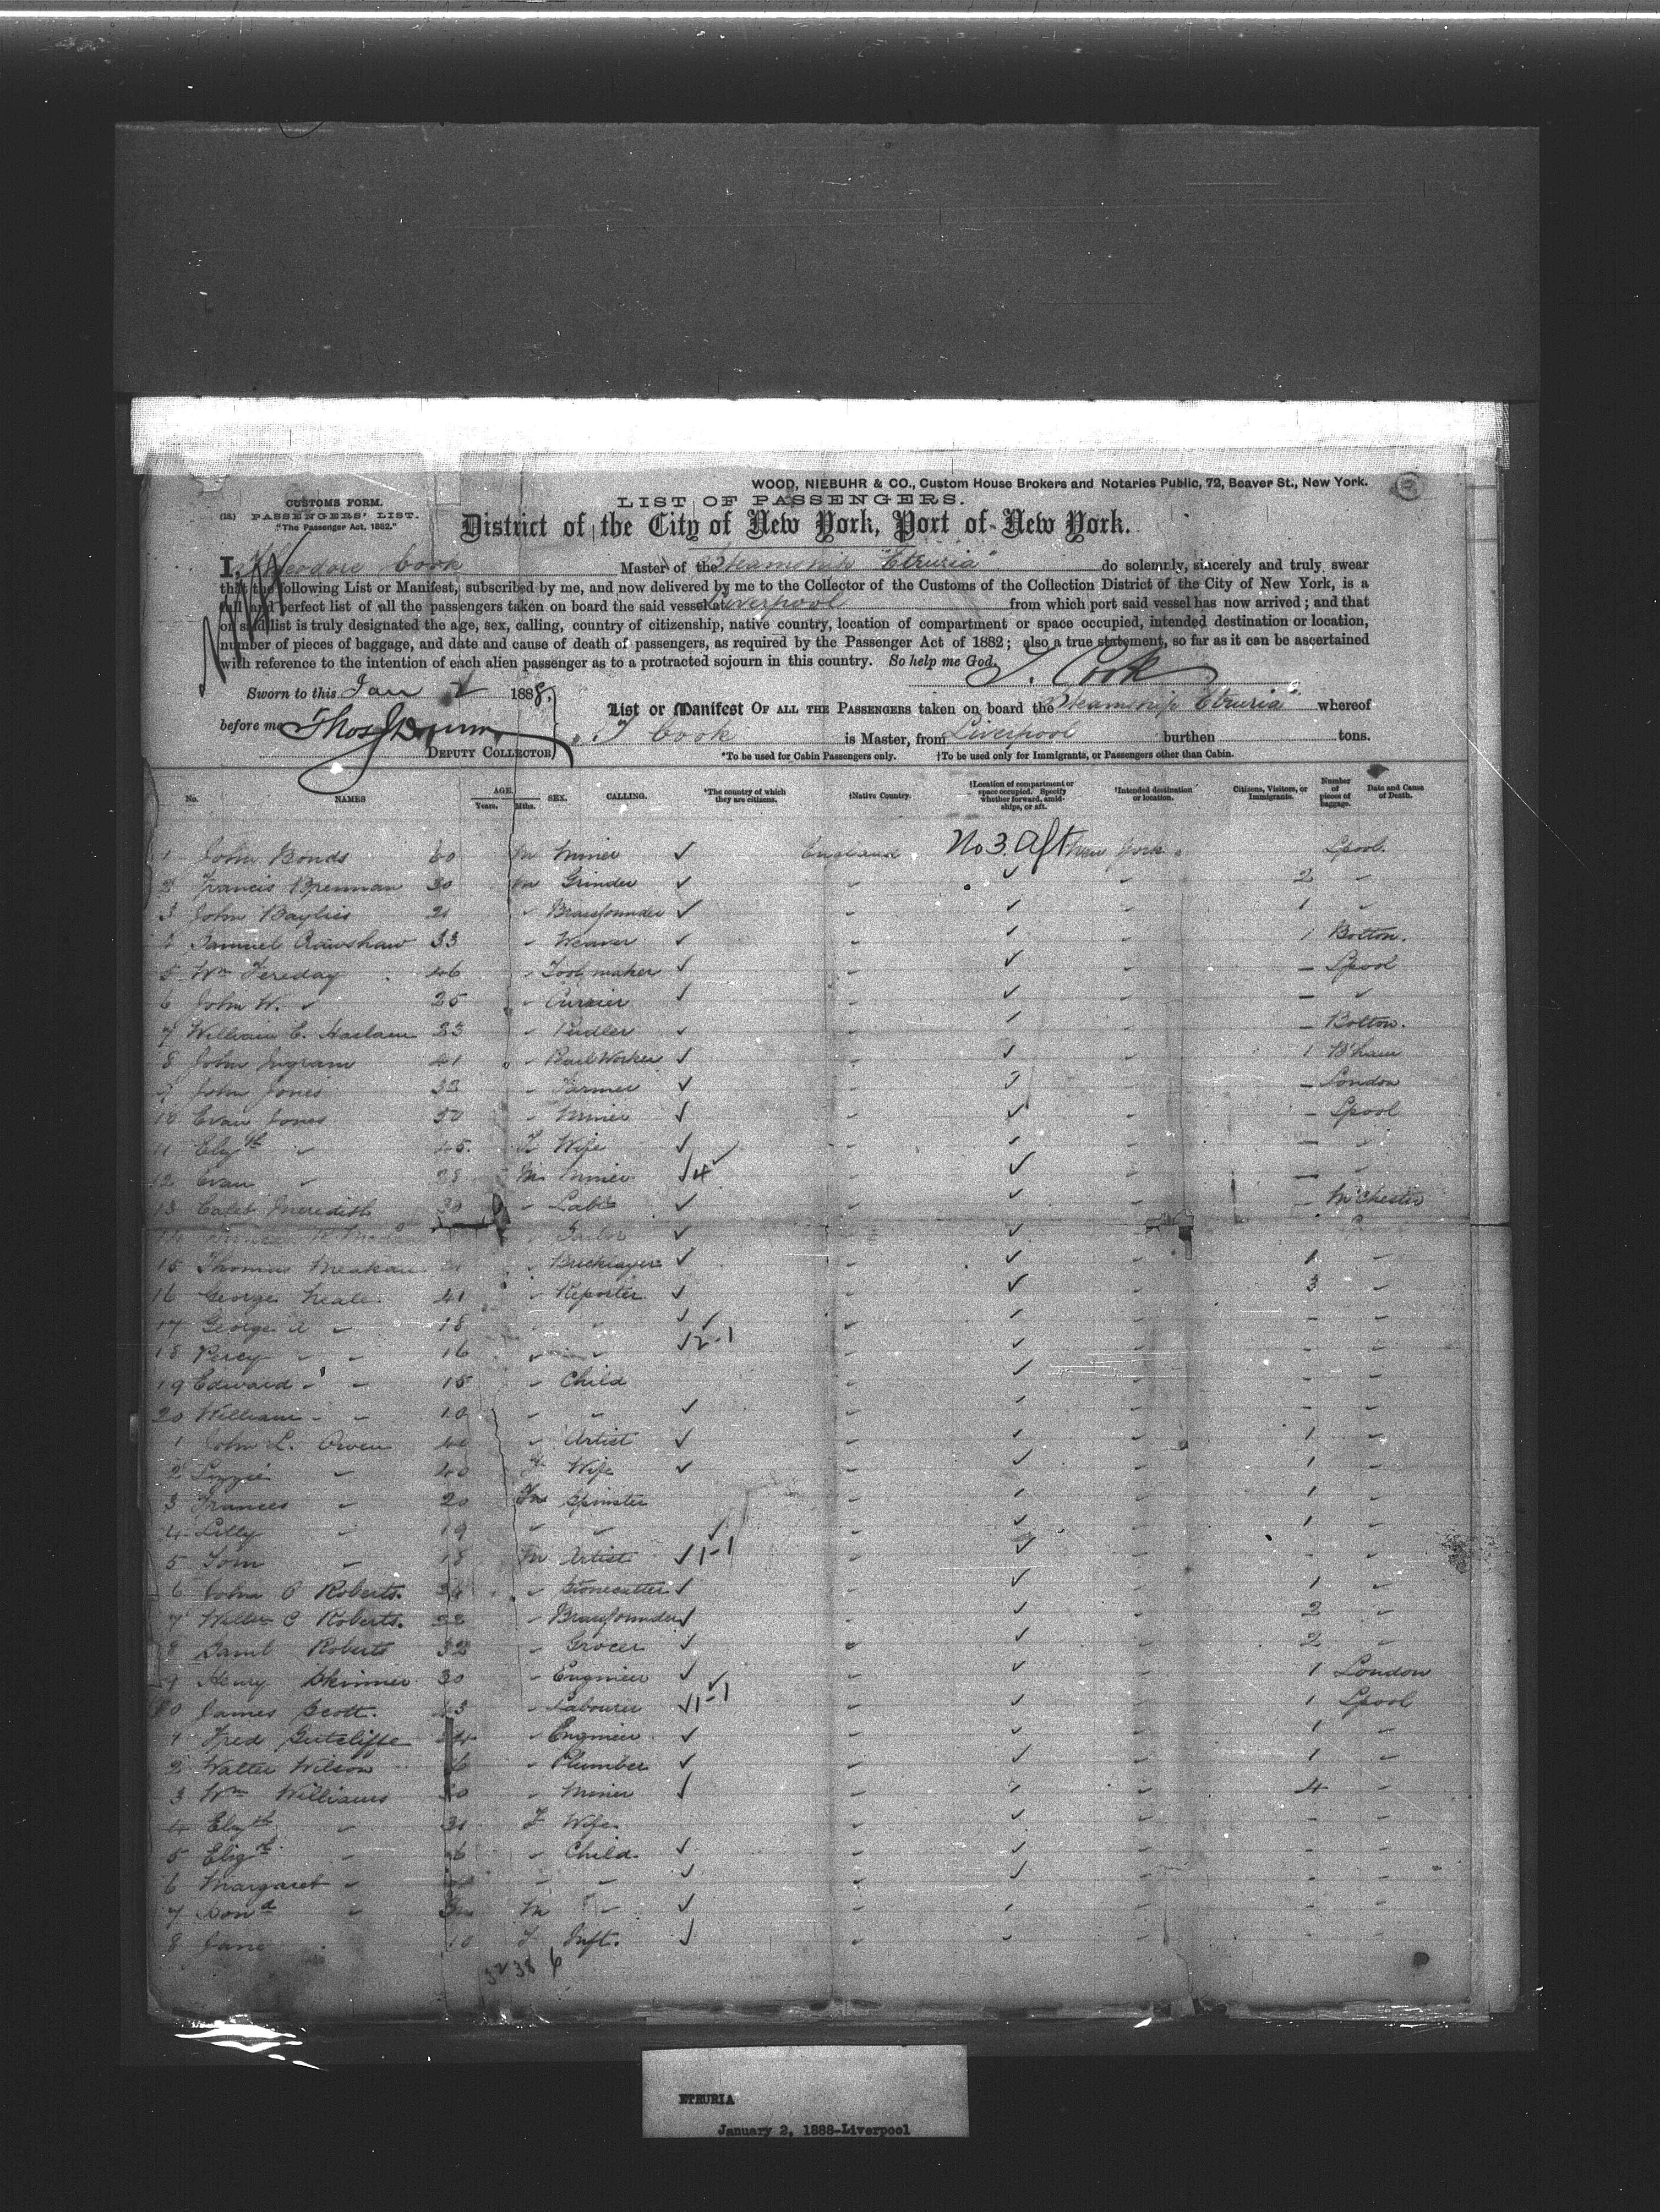 WOOD, NIEBUHR & CO., Custom House Brokers and Notaries Public, 72, Beaver St., New York.
CUSTOMS FORM.
LIST OF PASSENGERS.
(18.) PASSENGERS' LIST.
"The Passenger Act, 1882."
District of the City of New York, Port of New York.
I, Theodore Cook Master of the Steamship "Etruria" do solemnly, sincerely and truly swear
that the following List or Manifest, subscribed by me, and now delivered by me to the Collector of the Customs of the Collection District of the City of New York, is a
full and perfect list of all the passengers taken on board the said vessel at Liverpool from which port said vessel has now arrived; and that
on said list is truly designated the age, sex, calling, country of citizenship, native country, location of compartment or space occupied, intended destination or location,
number of pieces of baggage, and date and cause of death of passengers, as required by the Passenger Act of 1882; also a true statement, so far as it can be ascertained
with reference to the intention of each alien passenger as to a protracted sojourn in this country. So help me God.
T. Cook
Sworn to this Jan 2 1888.
List or Manifest OF ALL THE PASSENGERS taken on board the Steamship Etruria whereof
before me
T Cook is Master, from Liverpool burthen tons.
DEPUTY COLLECTOR
*To be used for Cabin Passengers only. †To be used only for Immigrants, or Passengers other than Cabin.
No. NAMES AGE. Years. Mths. SEX. CALLING. *The country of which they are citizens. †Native Country. †Location of compartment or space occupied. Specify whether forward, amidships, or aft. †Intended destination or location. Citizens, Visitors, or Immigrants. Number of pieces of baggage. Date and Cause of Death.
1 John Bonds 60 M Miner ✓ England No 3. Aft New York Lpool.
2 Francis Brennan 30 M Grinder ✓ ✓ 2
3 John Bayliss 21 Brassfounder ✓ ✓ 1
4 Samuel Crawshaw 33 Weaver ✓ ✓ 1 Bolton.
5 Wm Fereday 46 Toolmaker ✓ ✓ Lpool
6 John W. 25 Currier ✓ ✓
7 William E. Haslam 23 Pudler ✓ ✓ Bolton.
8 John Ingram 41 Pearl Worker ✓ ✓ 1 B'ham
9 John Jones 33 Farmer ✓ London
10 Evan Jones 50 Miner ✓ ✓ Lpool
11 Elizth 45 F Wife ✓ ✓
12 Evan 28 M Miner ✓ 4 ✓
13 Meredith 30 Labr ✓ ✓ M'Chester
14 Tailor ✓ ✓
15 Thomas Bricklayer ✓ ✓ 1
16 George Neale 41 Reporter ✓ ✓ 3
17 George A 18 ✓ ✓
18 Percy 16 ✓ 2-1 ✓
19 Edward 15 Child ✓
20 William 10 ✓ ✓
1 John L. Owen Artist ✓ ✓ 1
2 Lizzie 40 F Wife ✓ ✓ 1
3 Frances 20 Spinster ✓ 1
4 Lilly 19 ✓ 1
5 Tom 18 M Artist ✓ 1-1 ✓
6 John O Roberts. Stonecutter ✓ ✓ 1
7 O Roberts. 22 Brassfounder ✓ ✓ 2
8 Danl Roberts 32 Grocer ✓ ✓ 2
9 Henry Skinner 30 Engineer ✓ ✓ 1 London
30 James Scott. 43 Labourer ✓ 1-1 ✓ 1 Lpool
1 Fred Sutcliffe Engineer ✓ ✓ 1
2 Walter Wilson Plumber ✓ ✓ 1
3 Wm Williams 30 Miner ✓ 4
4 Elizth F Wife ✓
5 Elizth 6 Child ✓ ✓
6 Margaret ✓ ✓
7 M ✓
8 Jane 10 F Inft. ✓
38 6
ETRURIA
January 2, 1888-Liverpool